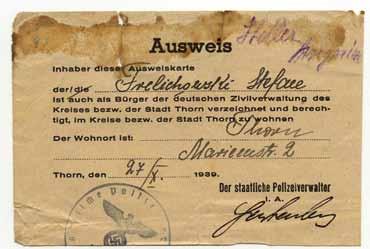 Ausweis
Inhaber dieser Ausweiskarte
der/die Frelichowski Stefan
ist auch als Bürger der deutschen Zivilverwaltung des
Kreises bezw. der Stadt Thorn verzeichnet und berech-
tigt, im Kreise bezw. der Stadt Thorn zu wohnen
Der Wohnort ist: Thorn
Marienstr. 2
Thorn, den 27/X. 1939.
Der staatliche Polizeiverwalter
I. A.